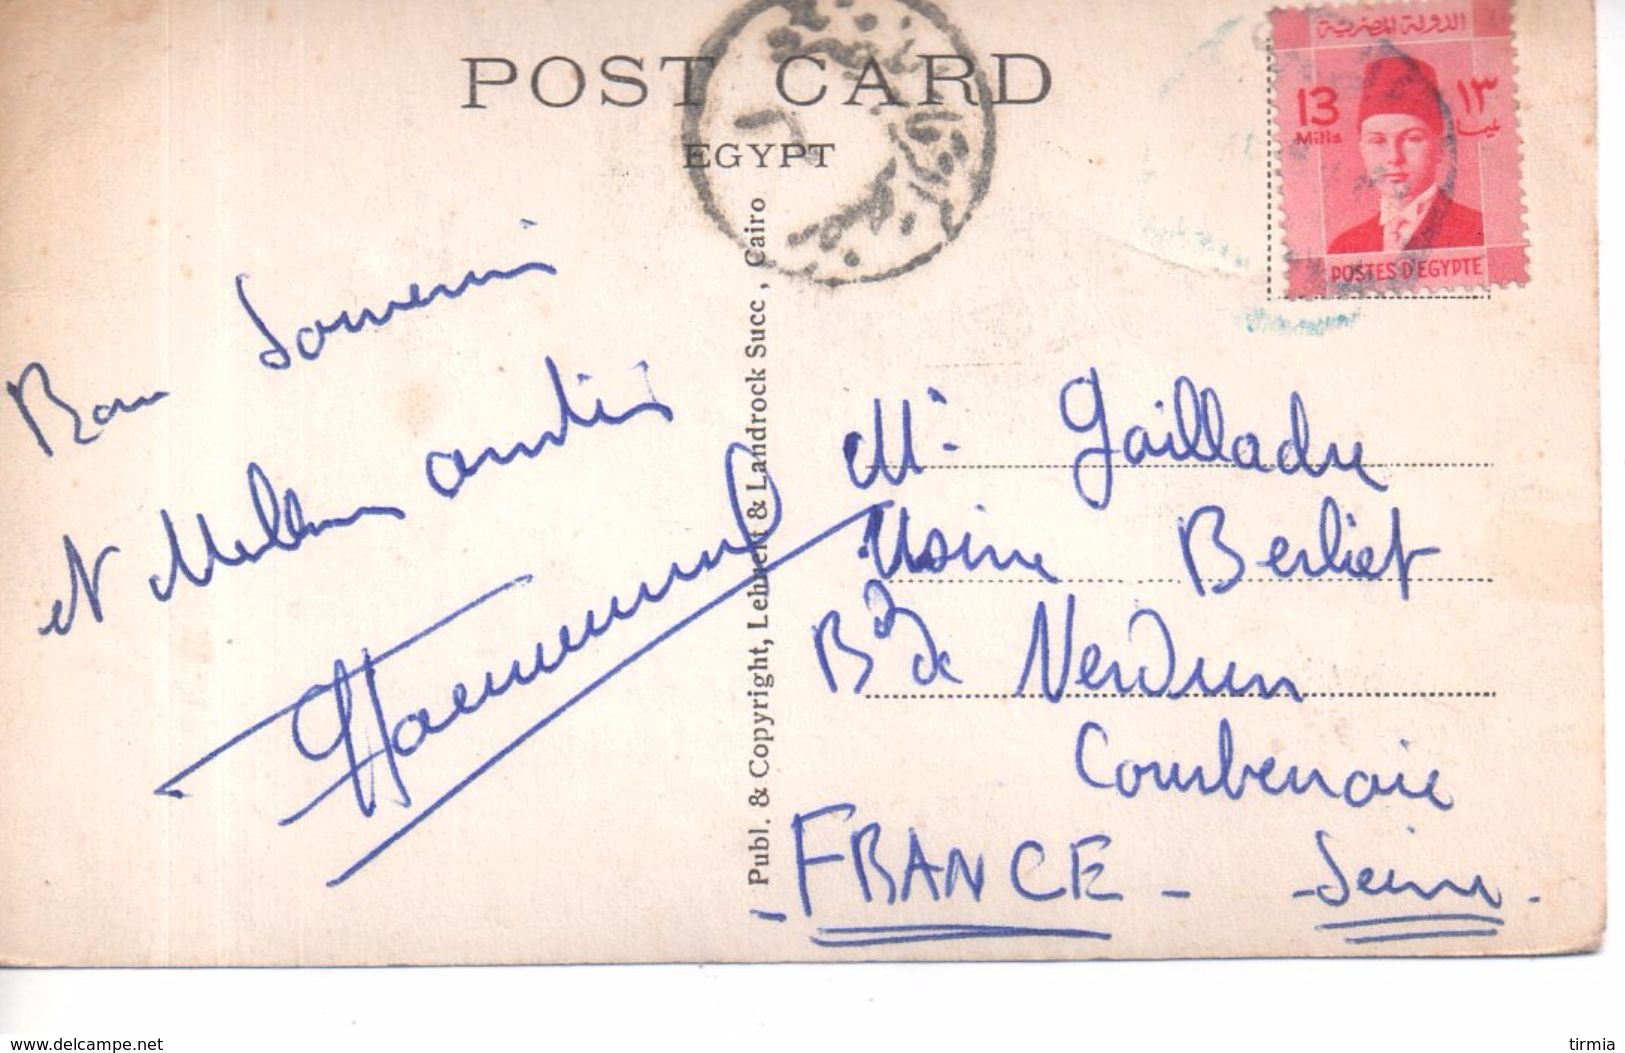 POST CARD
EGYPT
الدولة المصرية
13
Mills
١٣
POSTES D'EGYPTE
Bon Souvenir
et Meilleures amitiés
Publ. & Copyright, Lehnert & Landrock Succ , Cairo
Mr Gailladre
Usine Berliet
Bd de Verdun
Courbevoie
- FRANCE - - Seine -
www.delcampe.net
tirmia